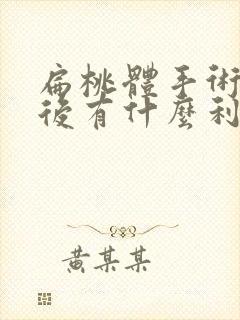 扁桃體手術
後有什麼利
黃某某